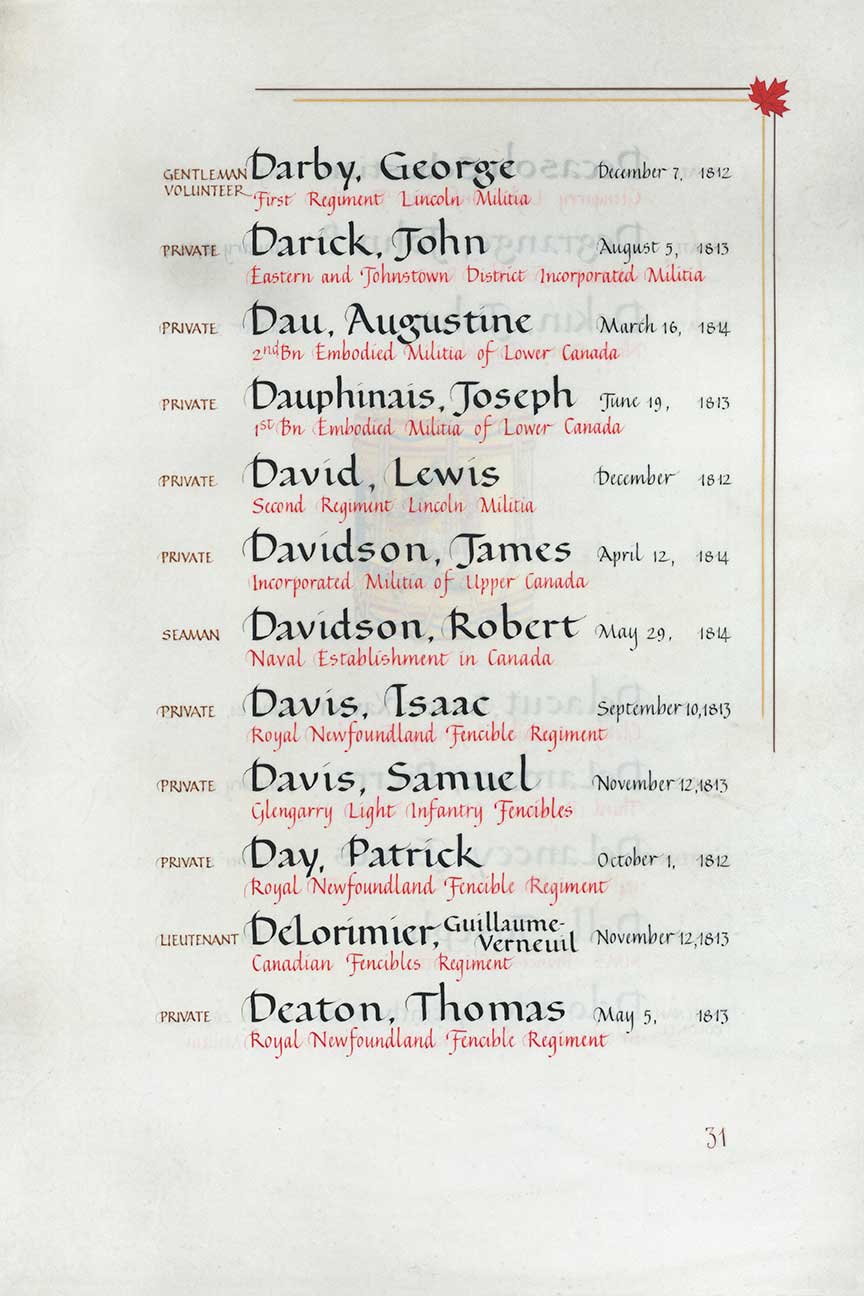 GENTLEMAN VOLUNTEER Darby, George December 7, 1812
First Regiment Lincoln Militia
PRIVATE Darick, John August 5, 1813
Eastern and Johnstown District Incorporated Militia
PRIVATE Dau, Augustine March 16, 1814
2nd Bn Embodied Militia of Lower Canada
PRIVATE Dauphinais, Joseph June 19, 1813
1st Bn Embodied Militia of Lower Canada
PRIVATE David, Lewis December 1812
Second Regiment Lincoln Militia
PRIVATE Davidson, James April 12, 1814
Incorporated Militia of Upper Canada
SEAMAN Davidson, Robert May 29, 1814
Naval Establishment in Canada
PRIVATE Davis, Isaac September 10, 1813
Royal Newfoundland Fencible Regiment
PRIVATE Davis, Samuel November 12, 1813
Glengarry Light Infantry Fencibles
PRIVATE Day, Patrick October 1, 1812
Royal Newfoundland Fencible Regiment
LIEUTENANT DeLorimier, Guillaume-Verneuil November 12, 1813
Canadian Fencibles Regiment
PRIVATE Deaton, Thomas May 5, 1813
Royal Newfoundland Fencible Regiment
31